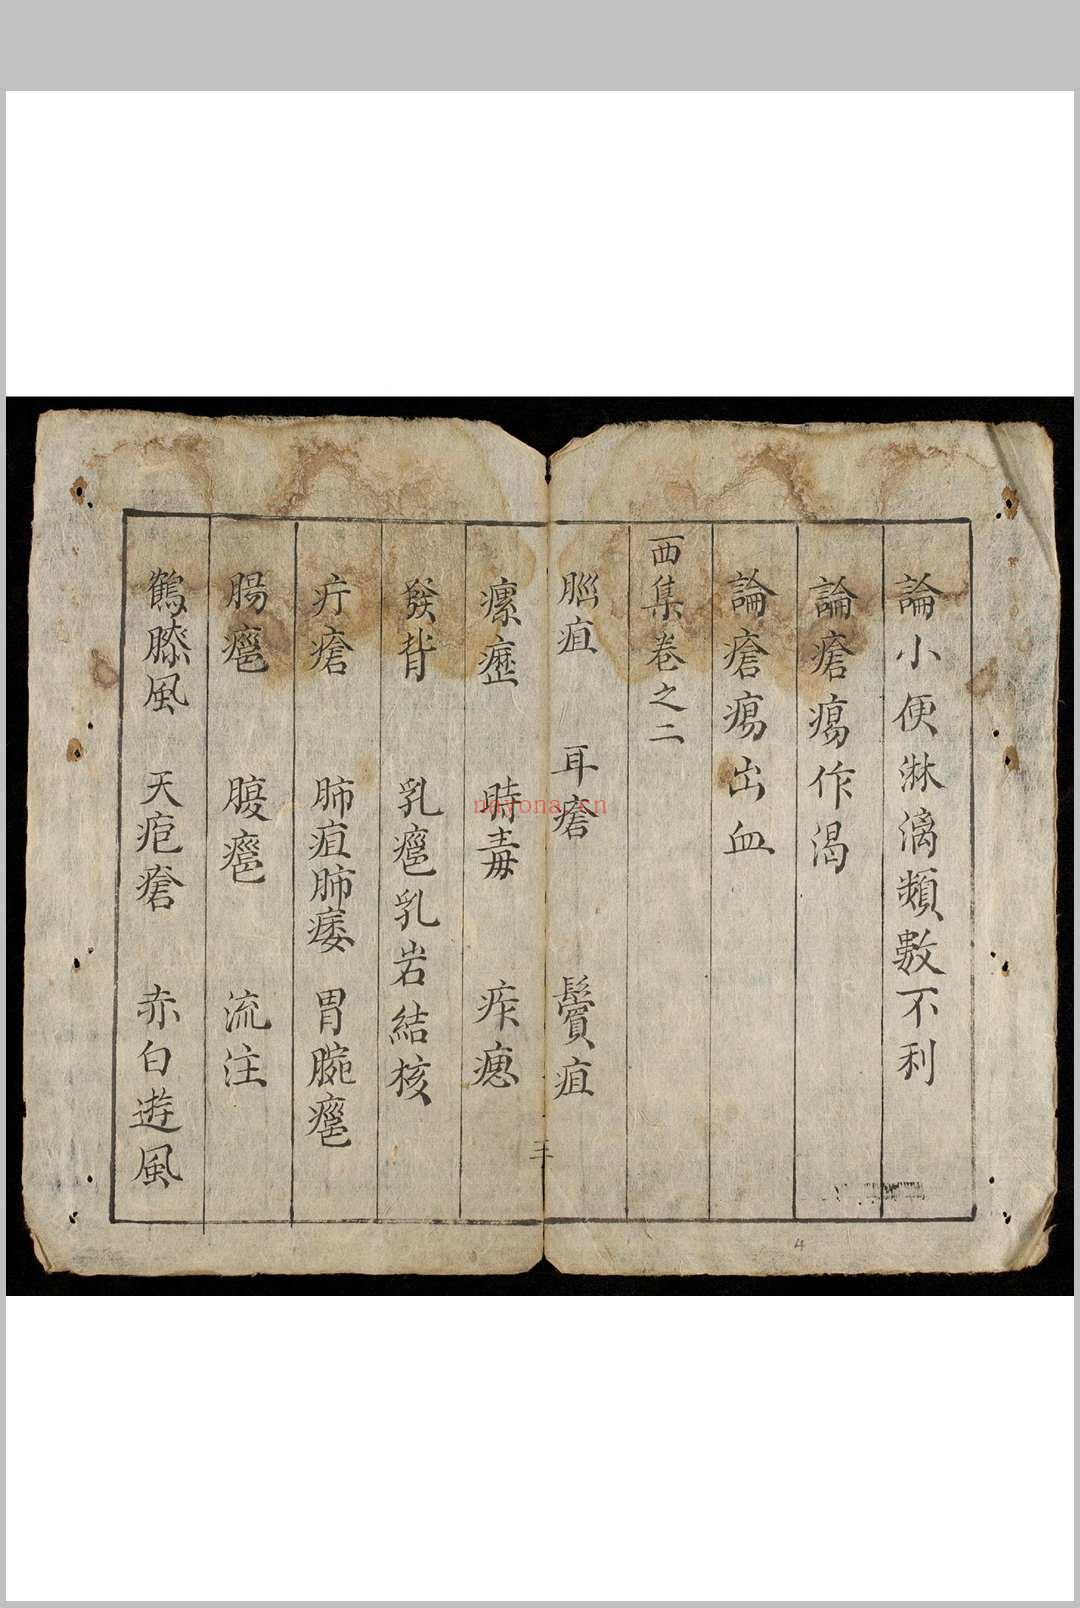 論小便淋漓頻數不利
論瘡瘍作渴
論瘡瘍出血
西集卷之二
腦疽 耳瘡 鬢疽
瘰癧 時毒 痄腮
發背 乳癰乳岩結核
疔瘡 肺疽肺痿 胃脘癰
腸癰 腹癰 流注
鶴膝風 天疱瘡 赤白遊風
三
4
nayona.cn